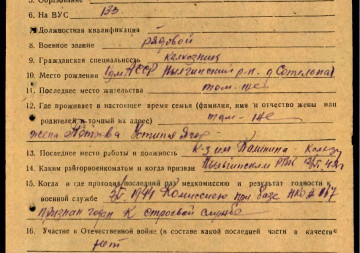 5. Образование
6. На ВУС 133
7. Должностная квалификация
8. Военное звание рядовой
9. Гражданская специальность колхозник
10. Место рождения УдмАССР Пычасский р-н. д
11. Последнее место жительства там-же
12. Где проживает в настоящее время семья (фамилия, имя и отчество жены или
родителей и точный их адрес) там-же
жена Петрова
13. Последнее место работы и должность к-з им колхоз
14. Каким райгорвоенкоматом и когда призван РВК
15. Когда и где проходил последний раз медкомиссию и результат годности к
военной службе 1941 Комиссией при базе НКО
признан годен к строевой службе
16. Участие в Отечественной войне (в составе какой последней части в качестве
нет